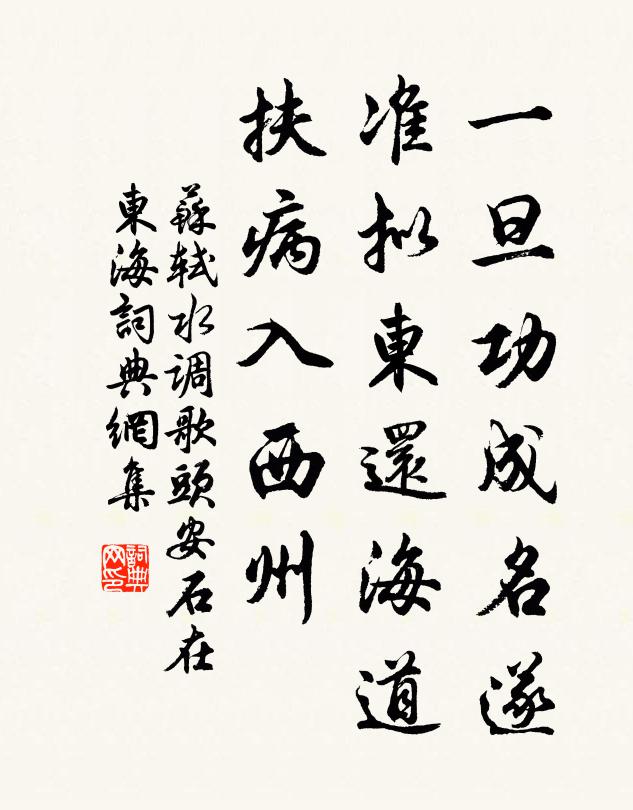 一旦功成名遂
准拟東還海道
扶病入西州
蘇轼水调歌頭安石在
東海詞典網集
詞典网印